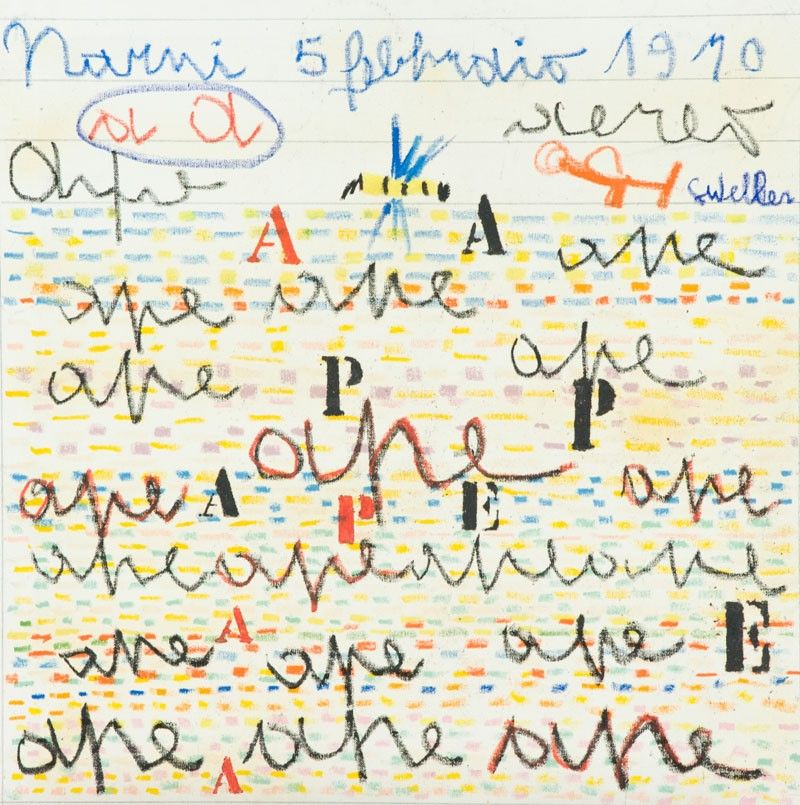 Narni 5 febbraio 1970
a a aereo
Ape
A A ape
ape ape
ape P ape
P
ape
ape A P E ape
apeapeapeape
ape A ape ape E
ape ape ape
A